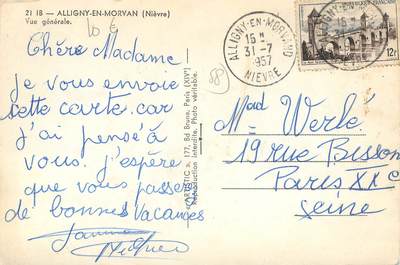 21 18 - ALLIGNY-EN-MORVAN (Nièvre)
Vue générale.
10 €
Chère Madame
je vous envoie
cette carte car
j'ai pensé à
vous j'espère
que vous passez
de bonnes vacances
"ARTISTIC", 177, Bd Brune, Paris (XIVe)
Reproduction interdite. Photo véritable.
ALLIGNY-EN-MORVAND
16 H
31-7
1957
NIEVRE
ALLIGNY-EN-MORVAND
FRANÇAISE
12F
Mad
Me Werlé
19 rue Bisson
Paris XXe
Seine